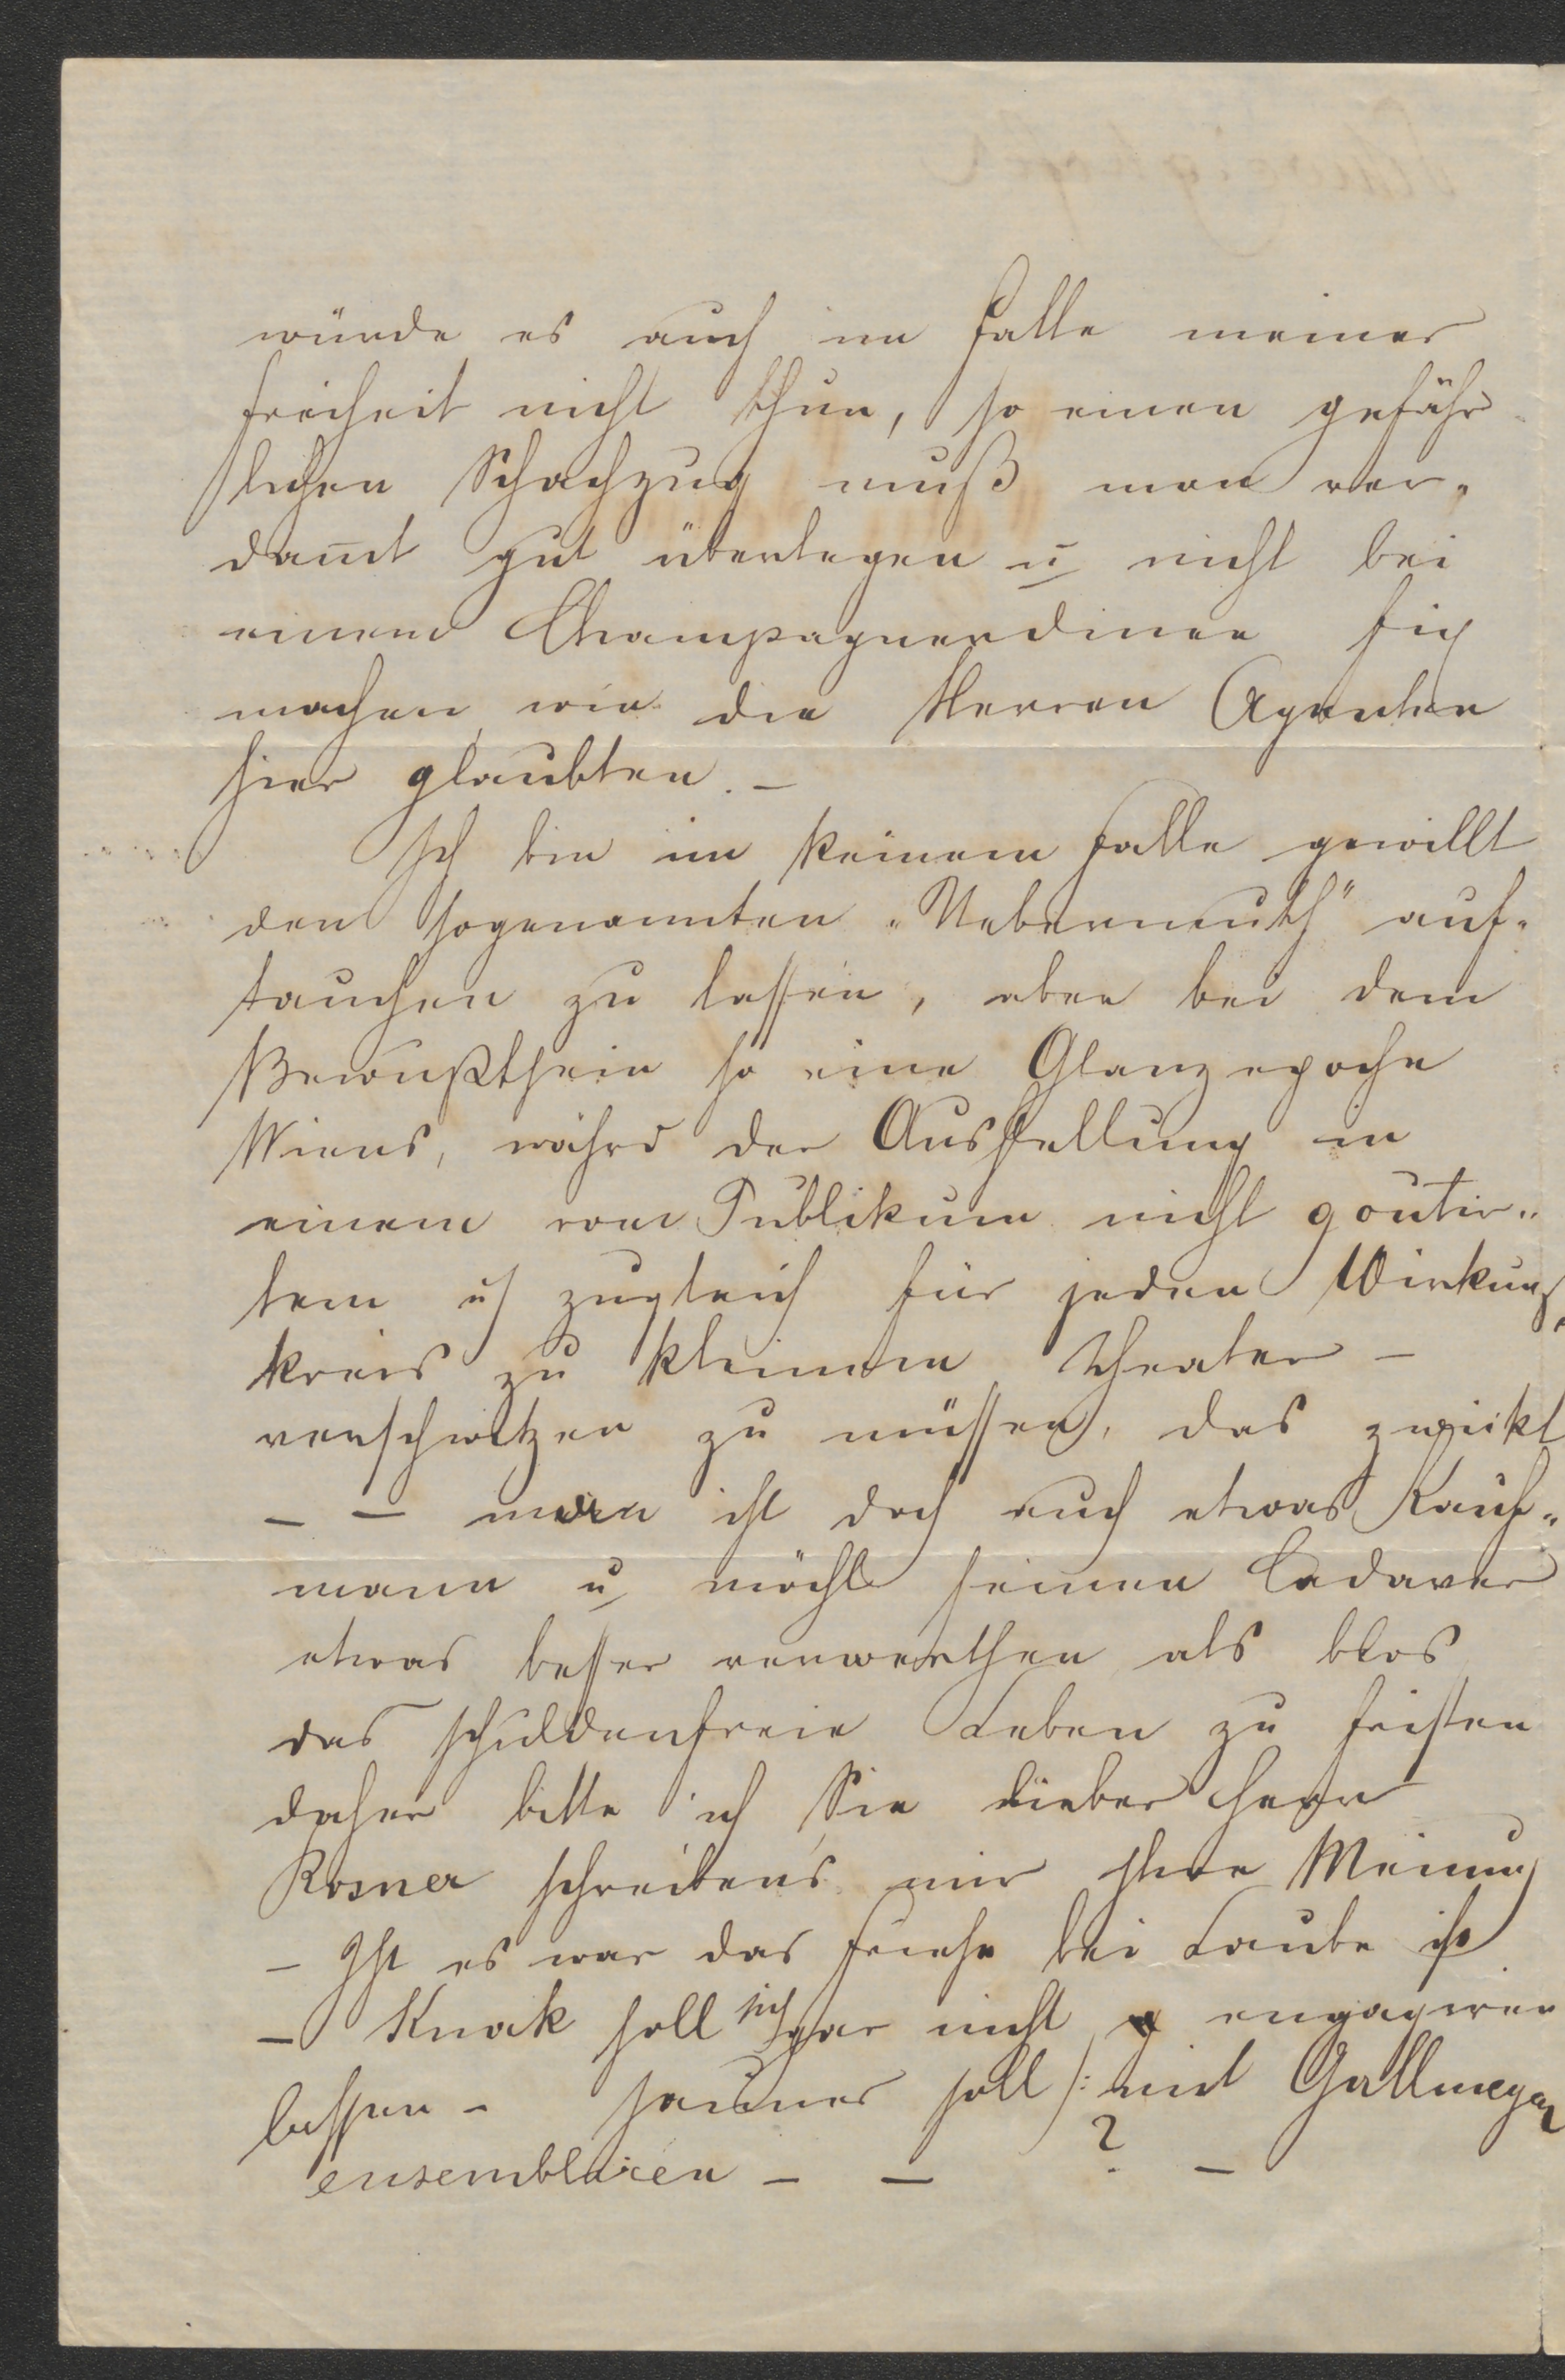 würde es auch im Falle meiner
Freiheit nicht thun, so einen gefähr
lichen Schachzug muß man ver-
dam̄t gut überlegen u nicht bei
einem Champagnerdiner sich
machen wie die Herren Agenten
hier glaubten. –
Ich bin in keinem Falle gewillt
den sogenannten „Uebermuth" auf-
tauchen zu lassen, aber bei dem
Bewußtsein so eine Glanzepoche
Wiens, währd der Ausstellung in
einem vom Publikum nicht goutir-
tem u zugleich für jeden Wirkungs
kreis zu kleinem Theater –
verschwitzen zu müssen, das zwickt
– – man ist doch auch etwas Kauf-
mann u möchte seinen Cadaver
etwas besser verwerthen als blos
das schuldenfreie Leben zu fristen
daher bitte ich Sie lieber Herr
Rosner schreibens mir Ihre Meinung
– Ist es war das Friese bei Laube ist
– Knaak soll sich gar nicht engagiren
lassen – Jauner soll /: mit Gallmeyer
ensembliren – – ? –